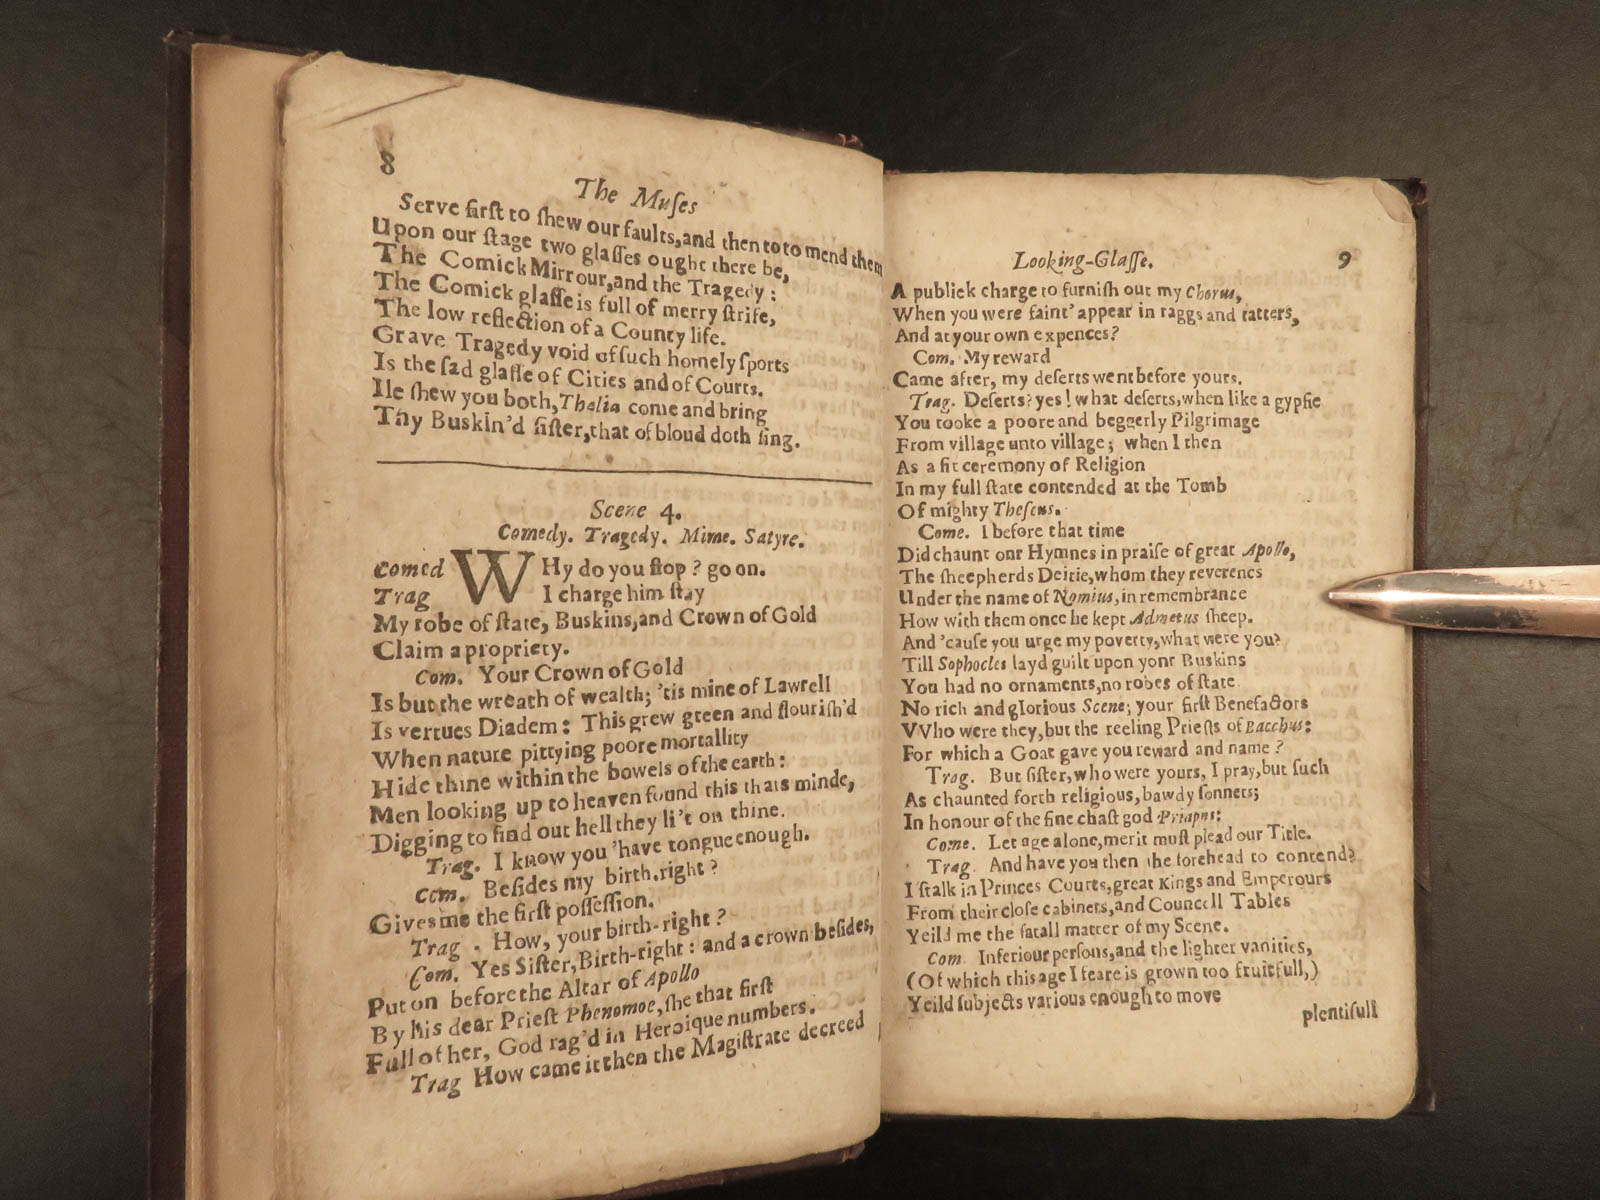 8
The Muſes
Serve firſt to ſhew our faults,and then to to mend them
Upon our ſtage two glaſſes ought there be,
The Comick Mirrour,and the Tragedy:
The Comick glaſſe is full of merry ſtrife,
The low reflection of a County life.
Grave Tragedy void of ſuch homely ſports
Is the ſad glaſſe of Cities and of Courts.
Ile ſhew you both,Thalia come and bring
Thy Buskin'd ſiſter,that of bloud doth ſing.
Scene 4.
Comedy. Tragedy. Mime. Satyre.
Comed WHy do you ſtop? go on.
Trag I charge him ſtay
My robe of ſtate, Buskins,and Crown of Gold
Claim a propriety.
Com. Your Crown of Gold
Is but the wreath of wealth; 'tis mine of Lawrell
Is vertues Diadem: This grew green and flouriſh'd
When nature pittying poore mortallity
Hide thine within the bowels of the earth:
Men looking up to heaven found this thats minde,
Digging to find out hell they li't on thine.
Trag. I know you 'have tongue enough.
Com. Beſides my birth.right?
Gives me the firſt poſſeſſion.
Trag. How, your birth-right?
Com. Yes Siſter,Birth-right: and a crown beſides,
Put on before the Altar of Apollo
By his dear Prieſt Phenomoe,ſhe that firſt
Full of her, God rag'd in Heroique numbers.
Trag How came it then the Magiſtrate decreed
Looking-Glaſſe. 9
A publick charge to furniſh out my Chorus,
When you were faint' appear in raggs and tatters,
And at your own expences?
Com. My reward
Came after, my deſerts went before yours.
Trag. Deſerts? yes! what deſerts,when like a gypſie
You tooke a poore and beggerly Pilgrimage
From village unto village; when I then
As a fit ceremony of Religion
In my full ſtate contended at the Tomb
Of mighty Theſeus.
Come. I before that time
Did chaunt onr Hymnes in praiſe of great Apollo,
The ſheepherds Deitie,whom they reverence
Under the name of Nomius,in remembrance
How with them once he kept Admetus ſheep.
And 'cauſe you urge my poverty,what were you?
Till Sophocles layd guilt upon yonr Buskins
You had no ornaments,no robes of ſtate
No rich and glorious Scene; your firſt Benefactors
VVho were they,but the reeling Prieſts of Bacchus:
For which a Goat gave you reward and name?
Trag. But ſiſter,who were yours, I pray,but ſuch
As chaunted forth religious,bawdy ſonnets;
In honour of the fine chaſt god Priapus:
Come. Let age alone,merit muſt plead our Title.
Trag. And have you then the forehead to contend?
I ſtalk in Princes Courts,great Kings and Emperours
From their cloſe cabinets,and Councell Tables
Yeild me the fatall matter of my Scene.
Com Inferiour perſons,and the lighter vanities,
(Of which this age I feare is grown too fruitfull,)
Yeild ſubjects various enough to move
plentifull